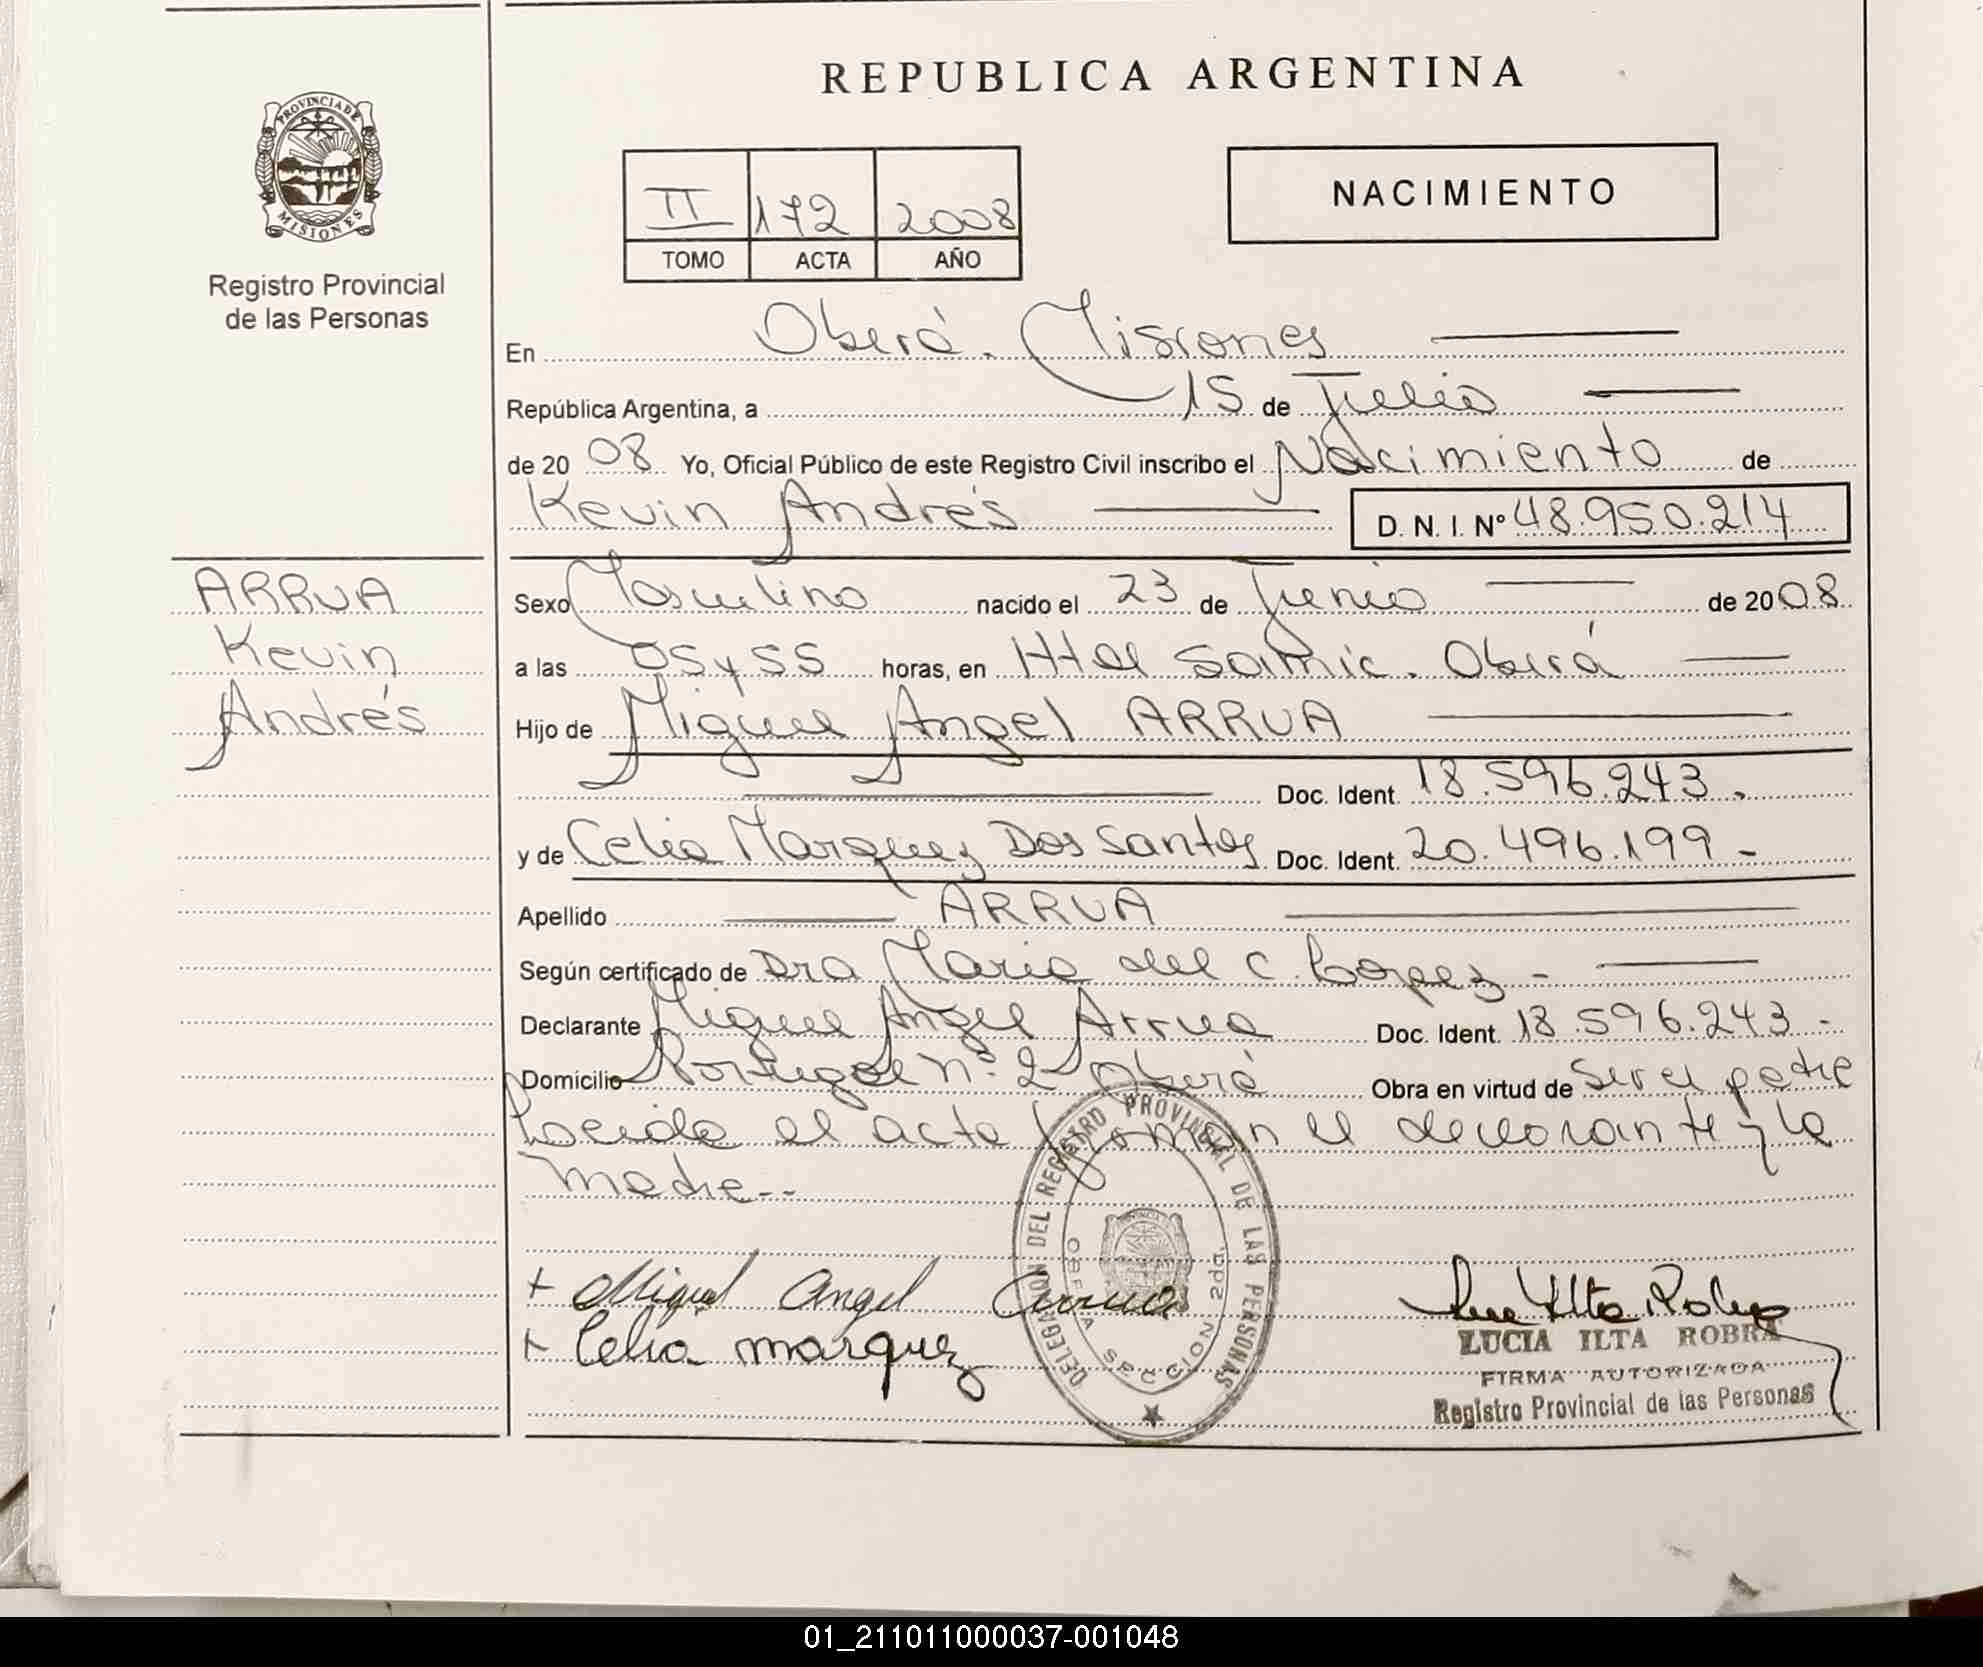 PROVINCIA DE
MISIONES
Registro Provincial
de las Personas
ARRUA
Kevin
Andrés
REPUBLICA ARGENTINA
II 172 2008
TOMO ACTA AÑO
NACIMIENTO
En Oberá. Misiones
República Argentina, a 15 de Julio
de 2008 Yo, Oficial Público de este Registro Civil inscribo el Nacimiento de
Kevin Andrés D. N. I. Nº 48.950.214
Sexo Masculino nacido el 23 de Junio de 2008
a las 05 y 55 horas, en Htal Samic. Oberá
Hijo de Miguel Angel ARRUA
Doc. Ident. 18.596.243.
y de Celia Marquez Dos Santos Doc. Ident. 20.496.199 -
Apellido ARRUA
Según certificado de Dra Maria del C. Lopez -
Declarante Miguel Angel Arrua Doc. Ident. 18.596.243 -
Domicilio Portugal nº 2 Oberá Obra en virtud de ser el padre
Loeida el acta firman el declarante y la
madre--
+ Miguel Angel Arrua
+ Celia marquez
DELEGACION DEL REGISTRO PROVINCIAL DE LAS PERSONAS
OBERA SECCION 2da.
Lucia Ilta Robra
LUCIA ILTA ROBRA
FIRMA AUTORIZADA
Registro Provincial de las Personas
01_211011000037-001048